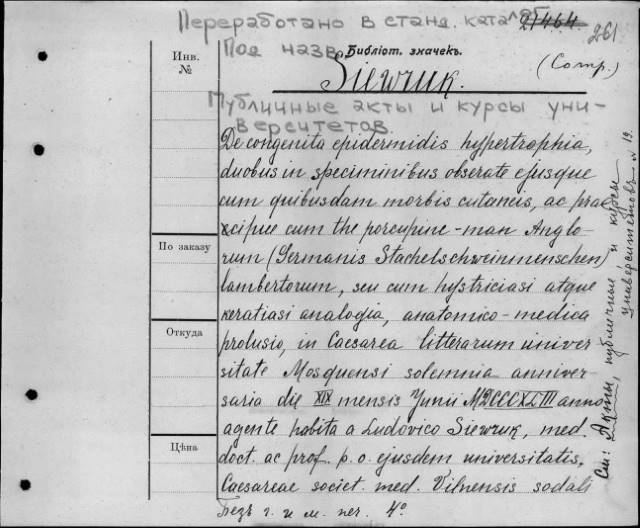 Переработано в станд. катал
21464.
261
Под назв.
Библіот. значекъ.
Инв.
№
(Comp.)
Siewruk.
Публичные акты и курсы уни-
верситетов.
De congenita epidermidis hypertrophia,
duobus in speciminibus obserate ejusque
cum quibusdam morbis cutaneis, ac prae
cipue cum the porcupine-man Anglo-
По заказу
rum (Germanis Stachelschweinmenschen)
lambertorum, seu cum hystriciasi atque
keratiasi analogia, anatomico-medica
Откуда
prolusio, in Caesarea litterarum univer
sitate Mosquensi solemnia anniver-
saria die XIX mensis Yunii MDCCCXLIII anno
agente habita a Ludovico Siewruk, med.
Цѣна
doct. ac prof. p. o. ejusdem universitatis,
Caesareae societ. med. Vilnensis sodali
Безъ г. и м. пег. 4°
См: Акты, публичные и курсы
университетовъ № 19